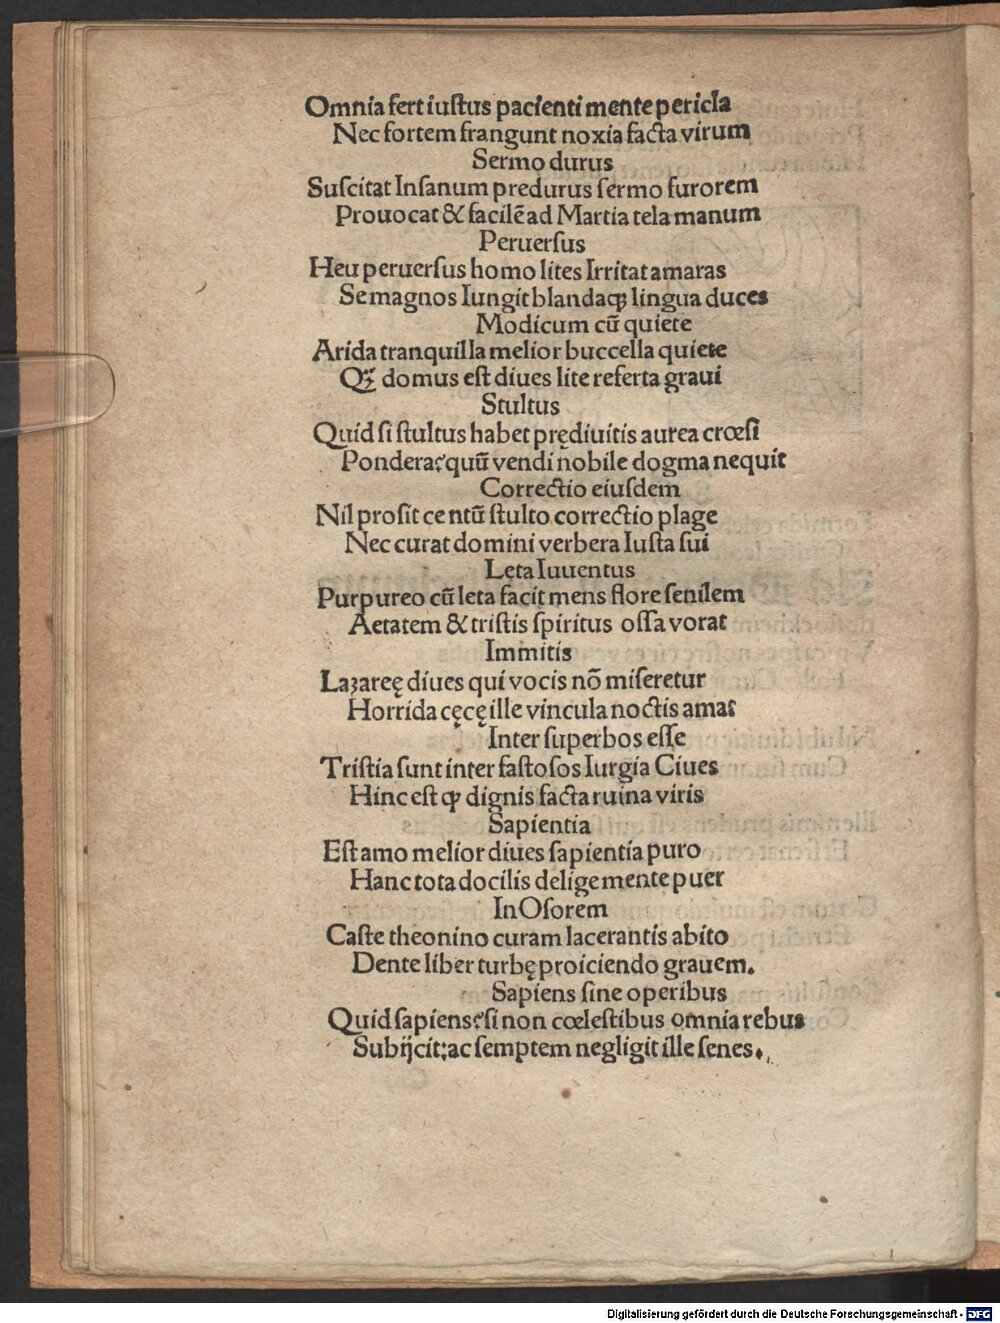 Omnia fert iuſtus pacienti mente pericla
Nec fortem frangunt noxia facta virum
Sermo durus
Suſcitat Inſanum predurus ſermo furorem
Prouocat & facilē ad Martia tela manum
Peruerſus
Heu peruerſus homo lites Irritat amaras
Se magnos Iungit blandaꝙ lingua duces
Modicum cū quiete
Arida tranquilla melior buccella quiete
Qꝫ̃ domus eſt diues lite referta graui
Stultus
Quid ſi ſtultus habet prędiuitis aurea crœſi
Pondera? quū vendi nobile dogma nequit
Correctio eiuſdem
Nil proſit centū ſtulto correctio plage
Nec curat domini verbera Iuſta ſui
Leta Iuuentus
Purpureo cū leta facit mens flore ſenilem
Aetatem & triſtis ſpiritus oſſa vorat
Immitis
Lazareę diues qui vocis nō miſeretur
Horrida cęcę ille vincula noctis amat
Inter ſuperbos eſſe
Triſtia ſunt inter faſtoſos Iurgia Ciues
Hinc eſt ꝙ dignis facta ruina viris
Sapientia
Eſt amo melior diues ſapientia puro
Hanc tota docilis delige mente puer
In Oſorem
Caſte theonino curam lacerantis abito
Dente liber turbę proiciendo grauem.
Sapiens ſine operibus
Quid ſapiens? ſi non cœleſtibus omnia rebus
Subijcit: ac ſemptem negligit ille ſenes.
Digitalisierung gefördert durch die Deutsche Forschungsgemeinschaft - DFG